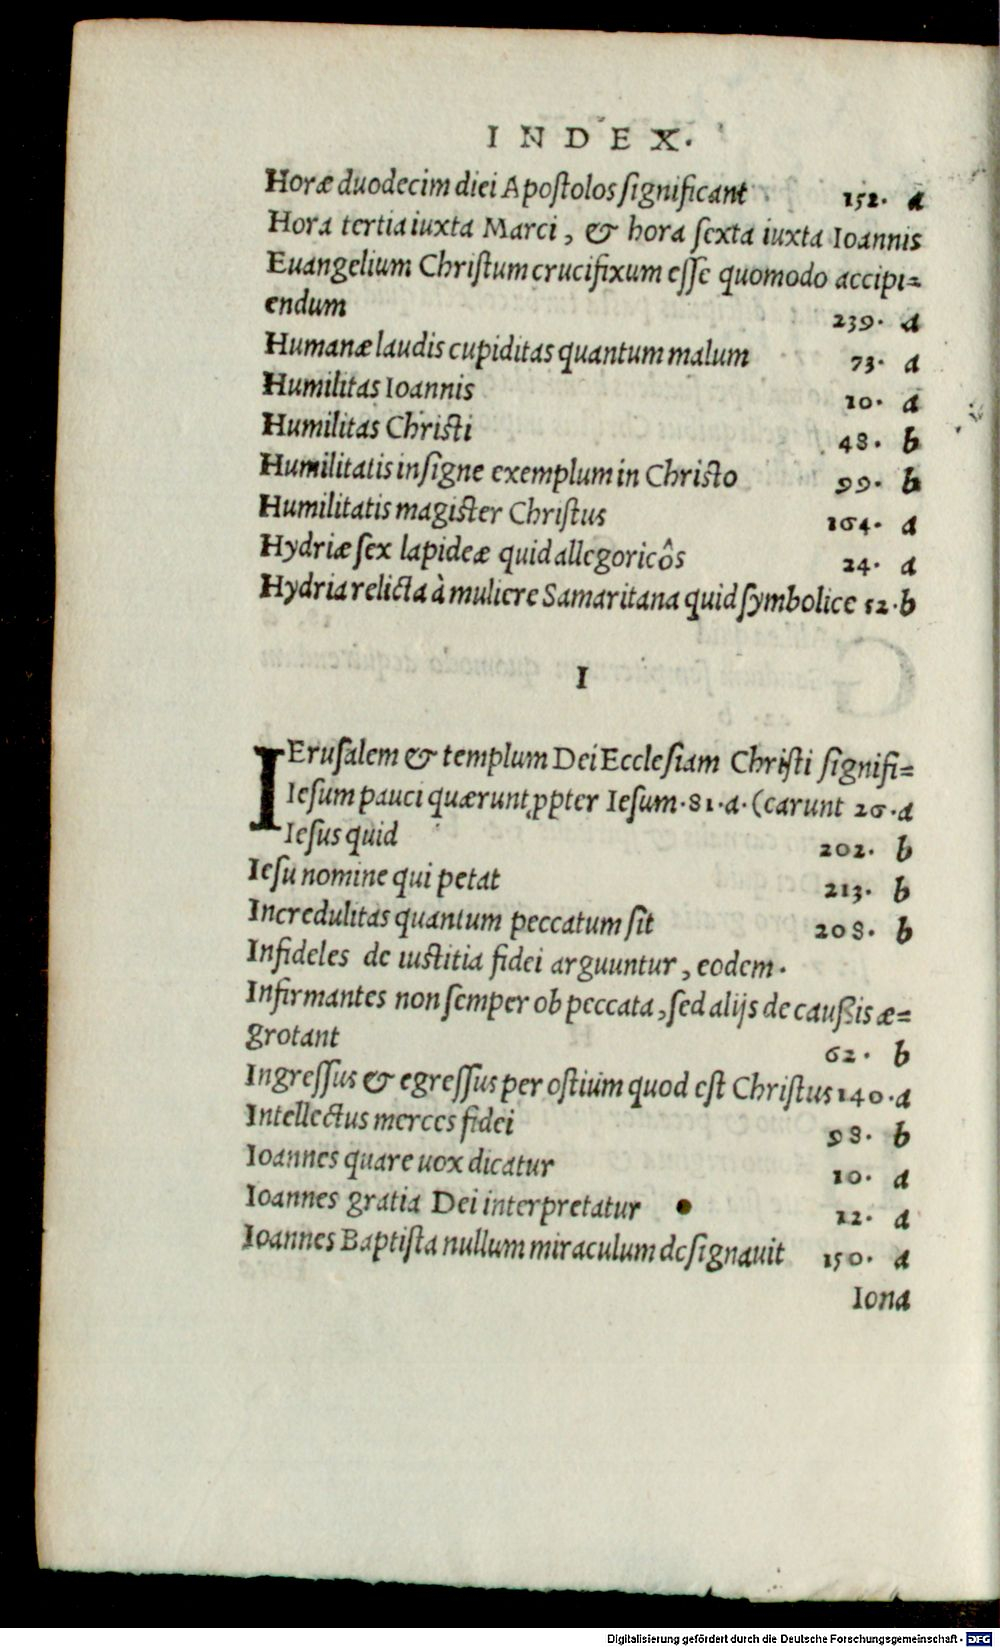 INDEX.
Horæ duodecim diei Apoſtolos ſignificant 152. a
Hora tertia iuxta Marci, & hora ſexta iuxta Ioannis
Euangelium Chriſtum crucifixum eſſe quomodo accipi=
endum 239. a
Humanæ laudis cupiditas quantum malum 73. a
Humilitas Ioannis 10. a
Humilitas Chriſti 48. b
Humilitatis inſigne exemplum in Chriſto 99. b
Humilitatis magiſter Chriſtus 164. a
Hydriæ ſex lapideæ quid allegoricôs 24. a
Hydria relicta à muliere Samaritana quid ſymbolice 52. b
I
IEruſalem & templum Dei Eccleſiam Chriſti ſignifi=
Ieſum pauci quærunt ꝓpter Ieſum. 81. a. (carunt 26. a
Ieſus quid 202. b
Ieſu nomine qui petat 213. b
Incredulitas quantum peccatum ſit 208. b
Infideles de iuſtitia fidei arguuntur, eodem.
Infirmantes non ſemper ob peccata, ſed alijs de cauſsis æ=
grotant 62. b
Ingreſſus & egreſſus per oſtium quod eſt Chriſtus 140. a
Intellectus merces fidei 98. b
Ioannes quare uox dicatur 10. a
Ioannes gratia Dei interpretatur 12. a
Ioannes Baptiſta nullum miraculum deſignauit 150. a
Iona
Digitalisierung gefördert durch die Deutsche Forschungsgemeinschaft - DFG